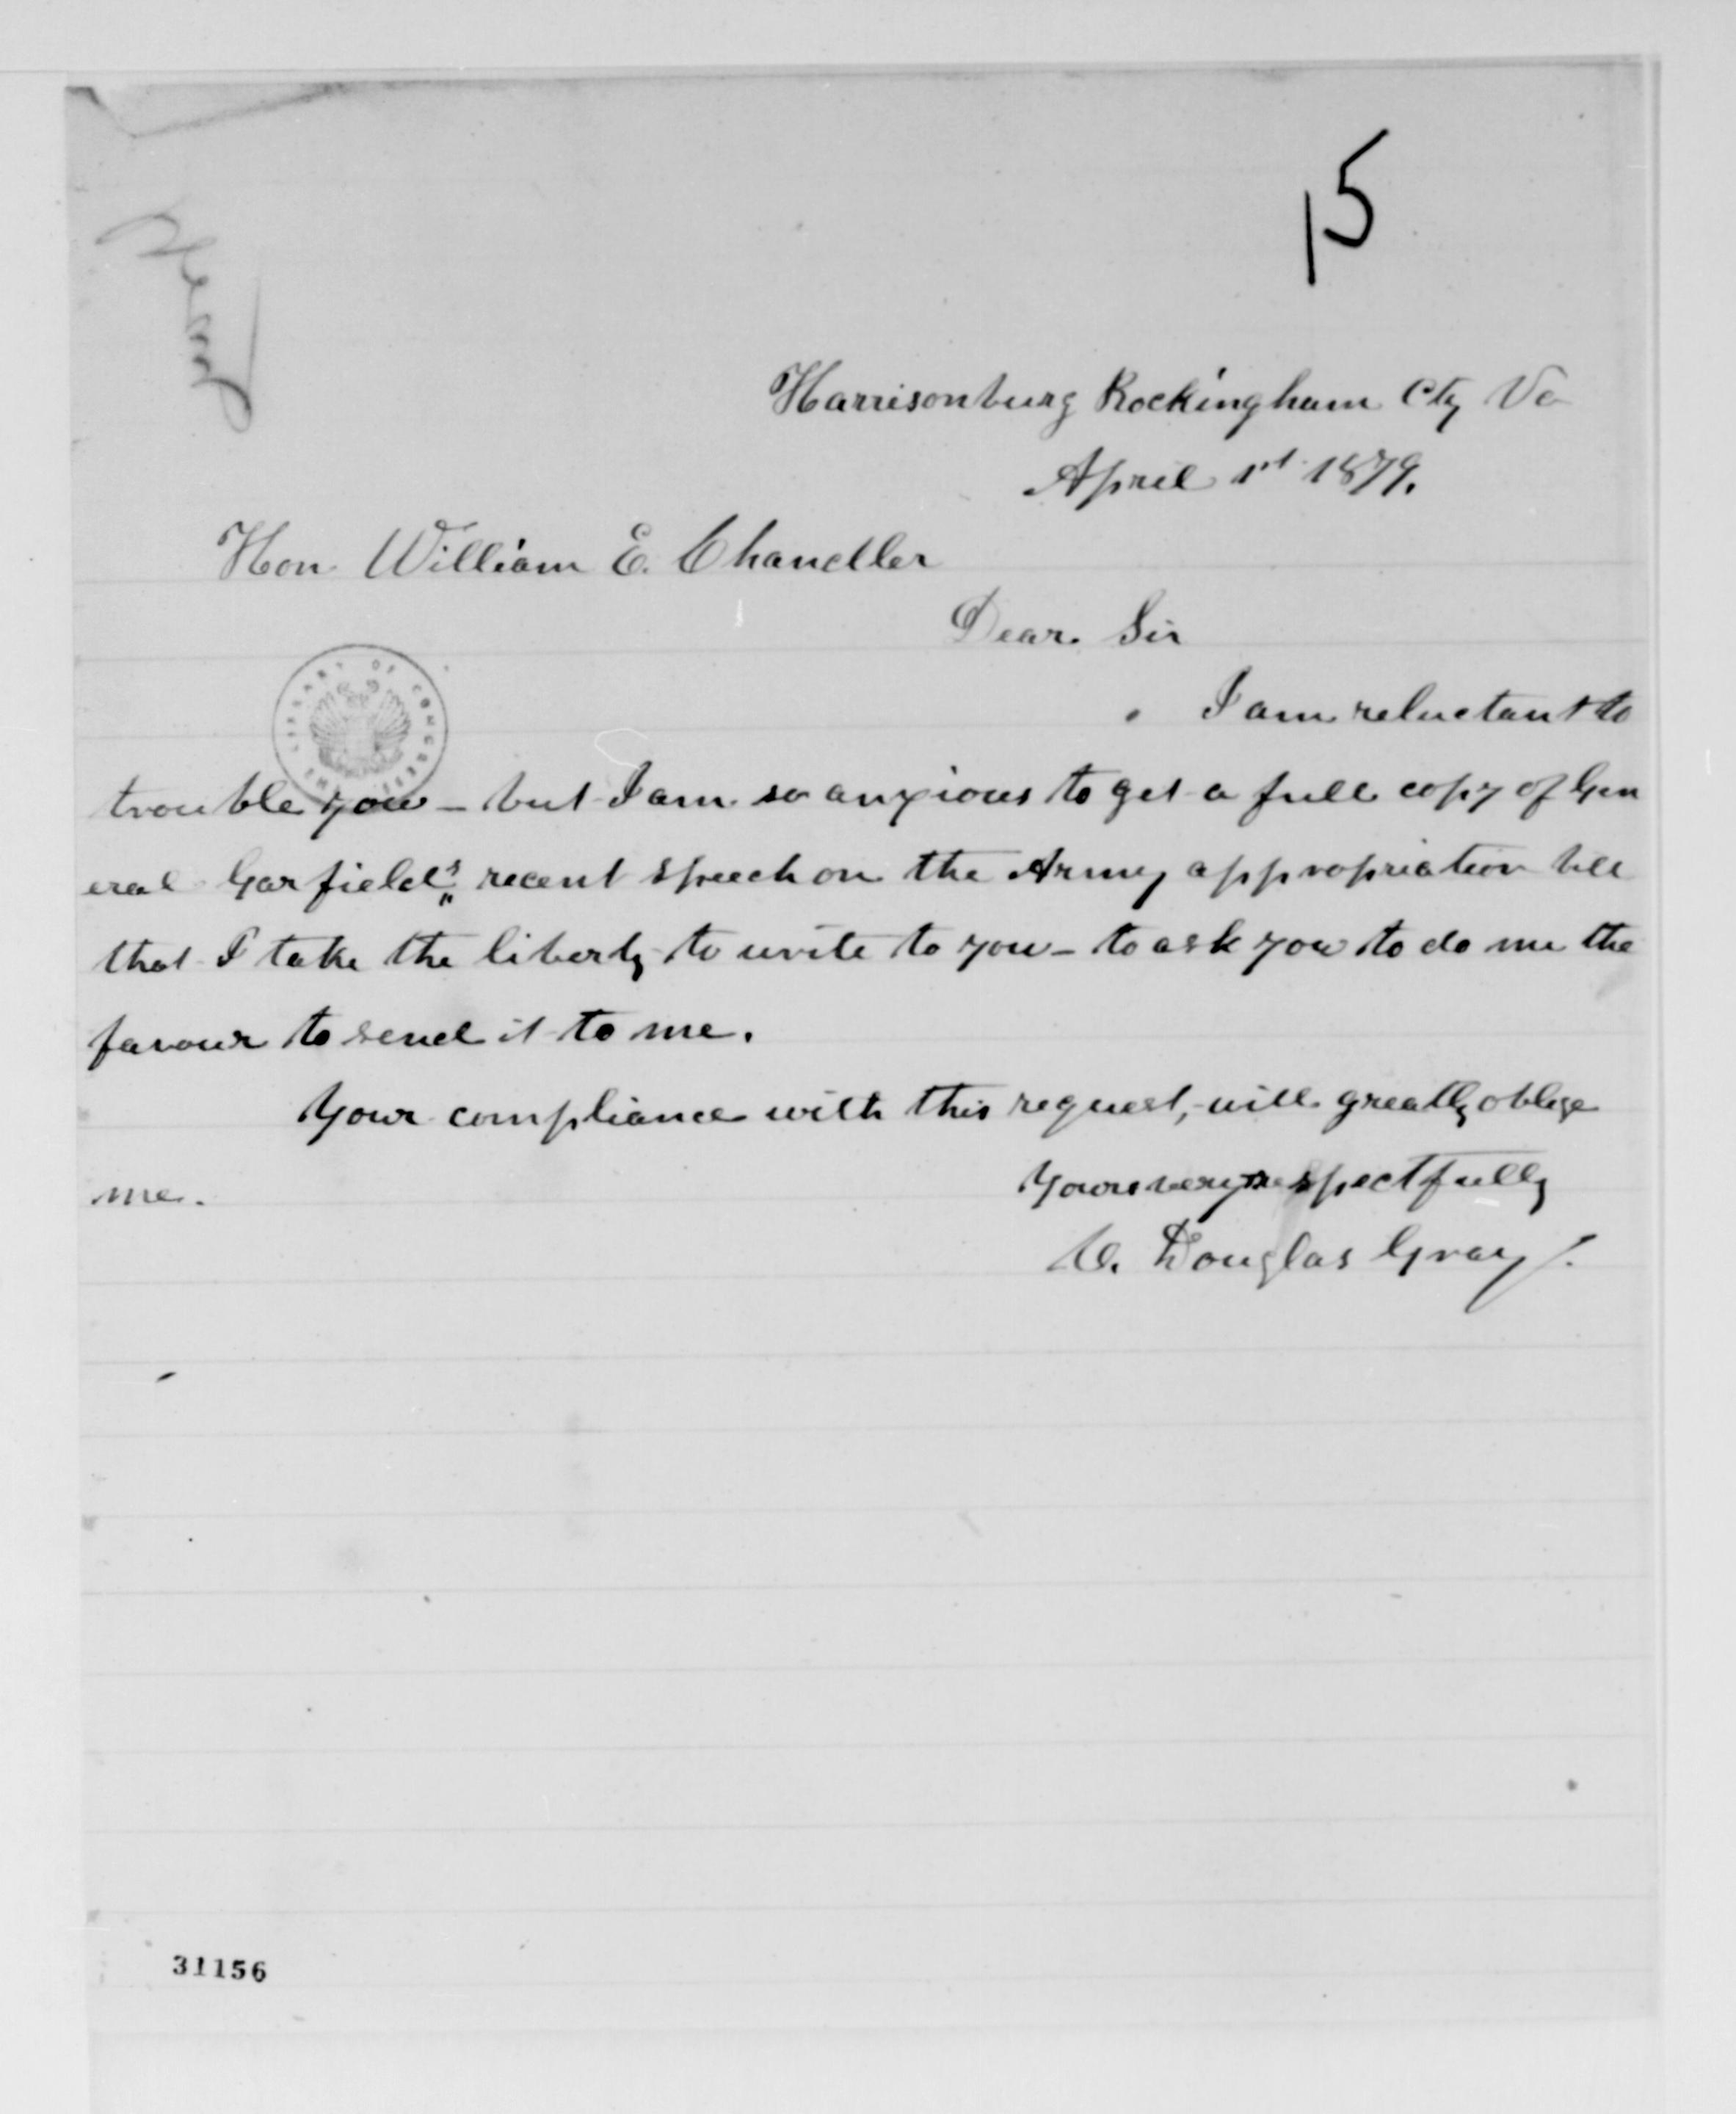 15
Harrisonburg Rockingham Cty Va
April 1st 1879.
Hon. William E. Chandler
Dear Sir
I am reluctant to
trouble you - but I am so anxious to get a full copy of Gen
eral Garfield's recent speech on the Army appropriation bill
that I take the liberty to write to you - to ask you to do me the
favour to send it to me.
Your compliance with this request, will greatly oblige
me.
Yours very respectfully
Douglas Gray.
THE LIBRARY OF CONGRESS
31156